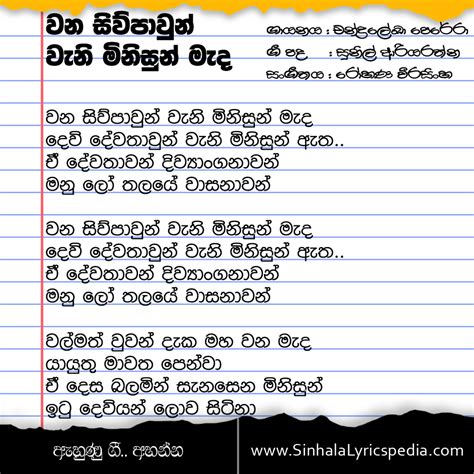 වන සිව්පාවුන්
වැනි මිනිසුන් මැද
ගායනය : චන්ද්‍රලේඛා පෙරේරා
ගී පද : සුනිල් ආරියරත්න
සංගීතය : රෝහණ වීරසිංහ
වන සිව්පාවුන් වැනි මිනිසුන් මැද
දෙව් දේවතාවුන් වැනි මිනිසුන් ඇත..
ඒ දේවතාවන් දිව්‍යාංගනාවන්
මනු ලෝ තලයේ වාසනාවන්
වන සිව්පාවුන් වැනි මිනිසුන් මැද
දෙව් දේවතාවුන් වැනි මිනිසුන් ඇත..
ඒ දේවතාවන් දිව්‍යාංගනාවන්
මනු ලෝ තලයේ වාසනාවන්
වල්මත් වුවන් දැක මහ වන මැද
යායුතු මාවත පෙන්වා
ඒ දෙස බලමින් සැනසෙන මිනිසුන්
ඉටු දෙවියන් ලොව සිටිනා
ඇහුණු ගී.. අහන්න
www.SinhalaLyricspedia.com